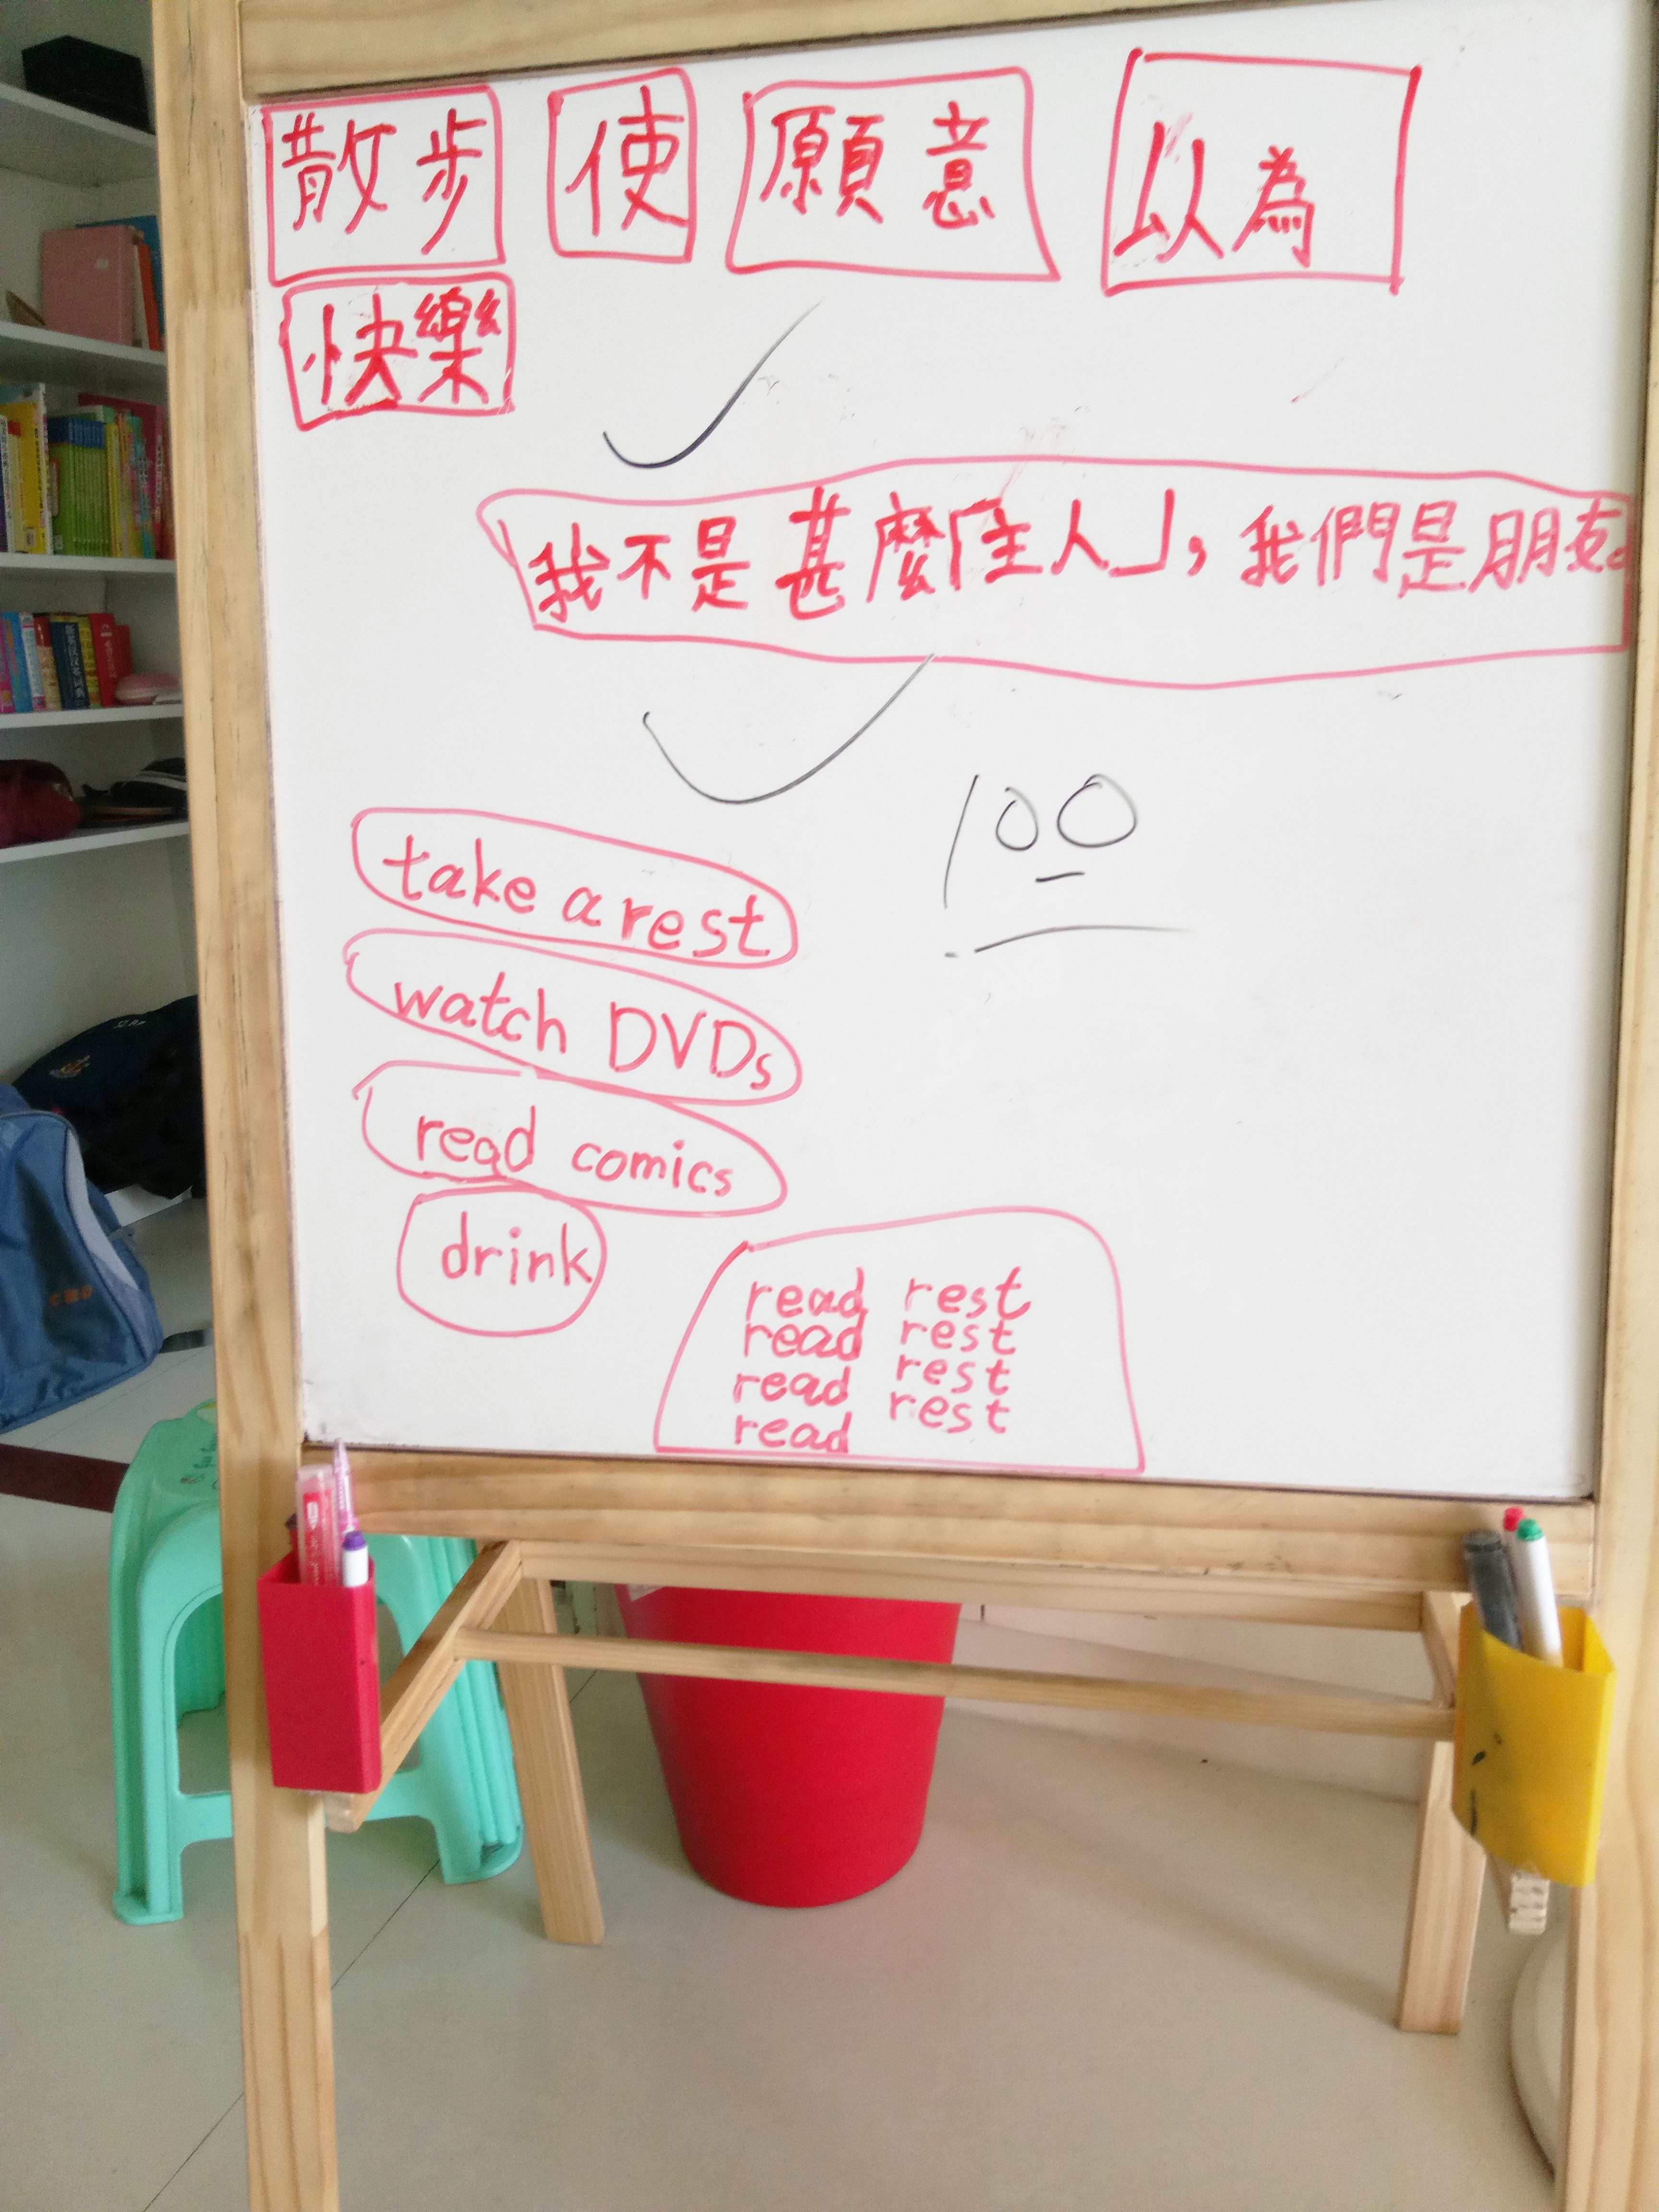 散步 使 願意 以為
快樂
我不是甚麼「主人」，我們是朋友。
100
take a rest
watch DVDs
read comics
drink
read rest
read rest
read rest
read rest